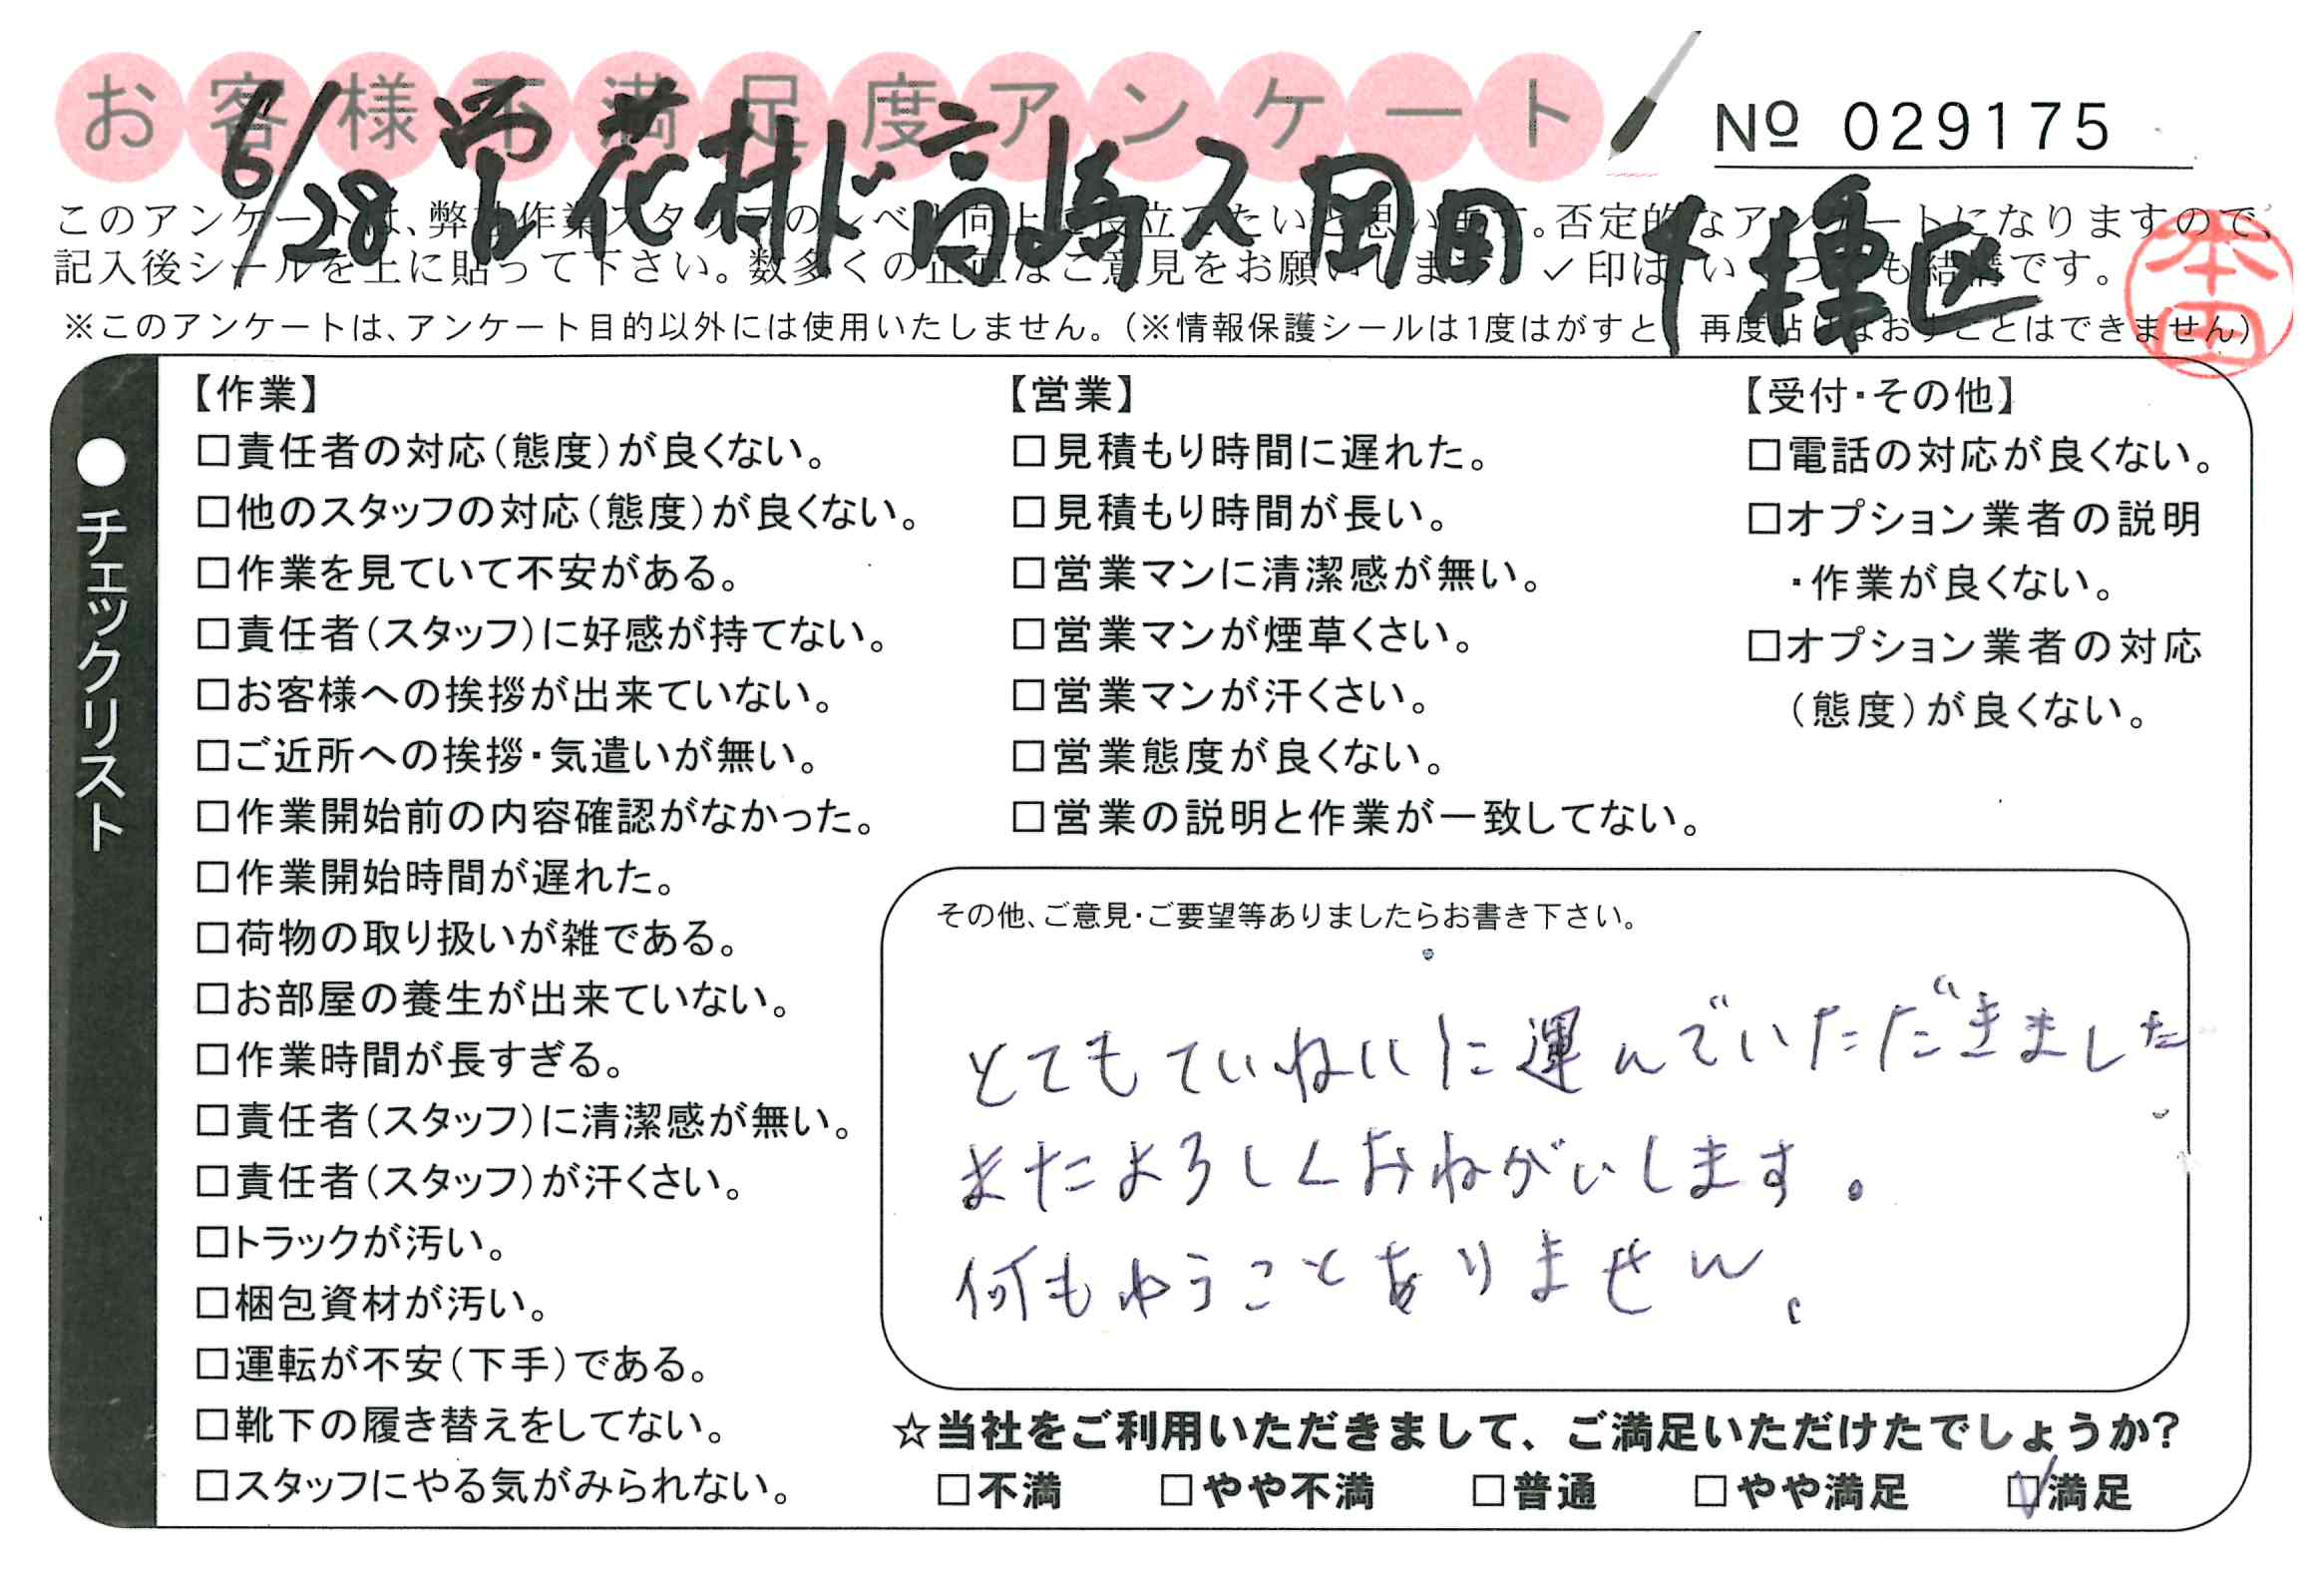 お客様不満足度アンケート
№ 029175
6/28 花村 ド高崎 ス岡田 千種区
このアンケートは、弊社作業スタッフのレベル向上に役立てたいと思います。否定的なアンケートになりますので、
記入後シールを上に貼って下さい。数多くの正直なご意見をお願いします。✓印はいくつでも結構です。
※このアンケートは、アンケート目的以外には使用いたしません。(※情報保護シールは1度はがすと、再度貼りなおすことはできません)
本田
●チェックリスト
【作業】
□責任者の対応(態度)が良くない。
□他のスタッフの対応(態度)が良くない。
□作業を見ていて不安がある。
□責任者(スタッフ)に好感が持てない。
□お客様への挨拶が出来ていない。
□ご近所への挨拶・気遣いが無い。
□作業開始前の内容確認がなかった。
□作業開始時間が遅れた。
□荷物の取り扱いが雑である。
□お部屋の養生が出来ていない。
□作業時間が長すぎる。
□責任者(スタッフ)に清潔感が無い。
□責任者(スタッフ)が汗くさい。
□トラックが汚い。
□梱包資材が汚い。
□運転が不安(下手)である。
□靴下の履き替えをしてない。
□スタッフにやる気がみられない。
【営業】
□見積もり時間に遅れた。
□見積もり時間が長い。
□営業マンに清潔感が無い。
□営業マンが煙草くさい。
□営業マンが汗くさい。
□営業態度が良くない。
□営業の説明と作業が一致してない。
【受付・その他】
□電話の対応が良くない。
□オプション業者の説明
・作業が良くない。
□オプション業者の対応
(態度)が良くない。
その他、ご意見・ご要望等ありましたらお書き下さい。
とてもていねいに運んでいただきました。
またよろしくおねがいします。
何もゆうことありません。
☆当社をご利用いただきまして、ご満足いただけたでしょうか?
□不満 □やや不満 □普通 □やや満足 ☑満足